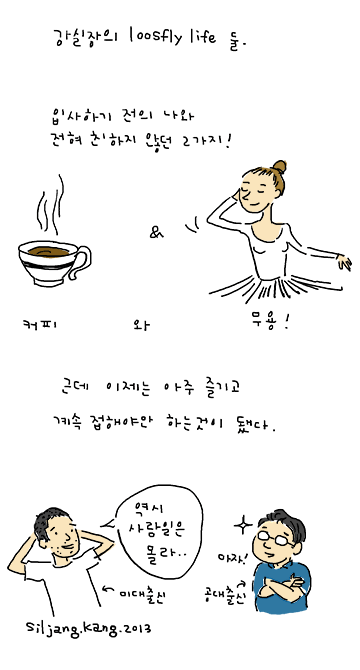 강실장의 loosfly life 둘.
입사하기 전의 나와
전혀 친하지 않던 2가지!
&
커피 와 무용!
근데 이제는 아주 즐기고
계속 접해야만 하는것이 됐다.
역시
사람일은
몰라..
아자!
미대출신
공대출신
siljang.kang.2013